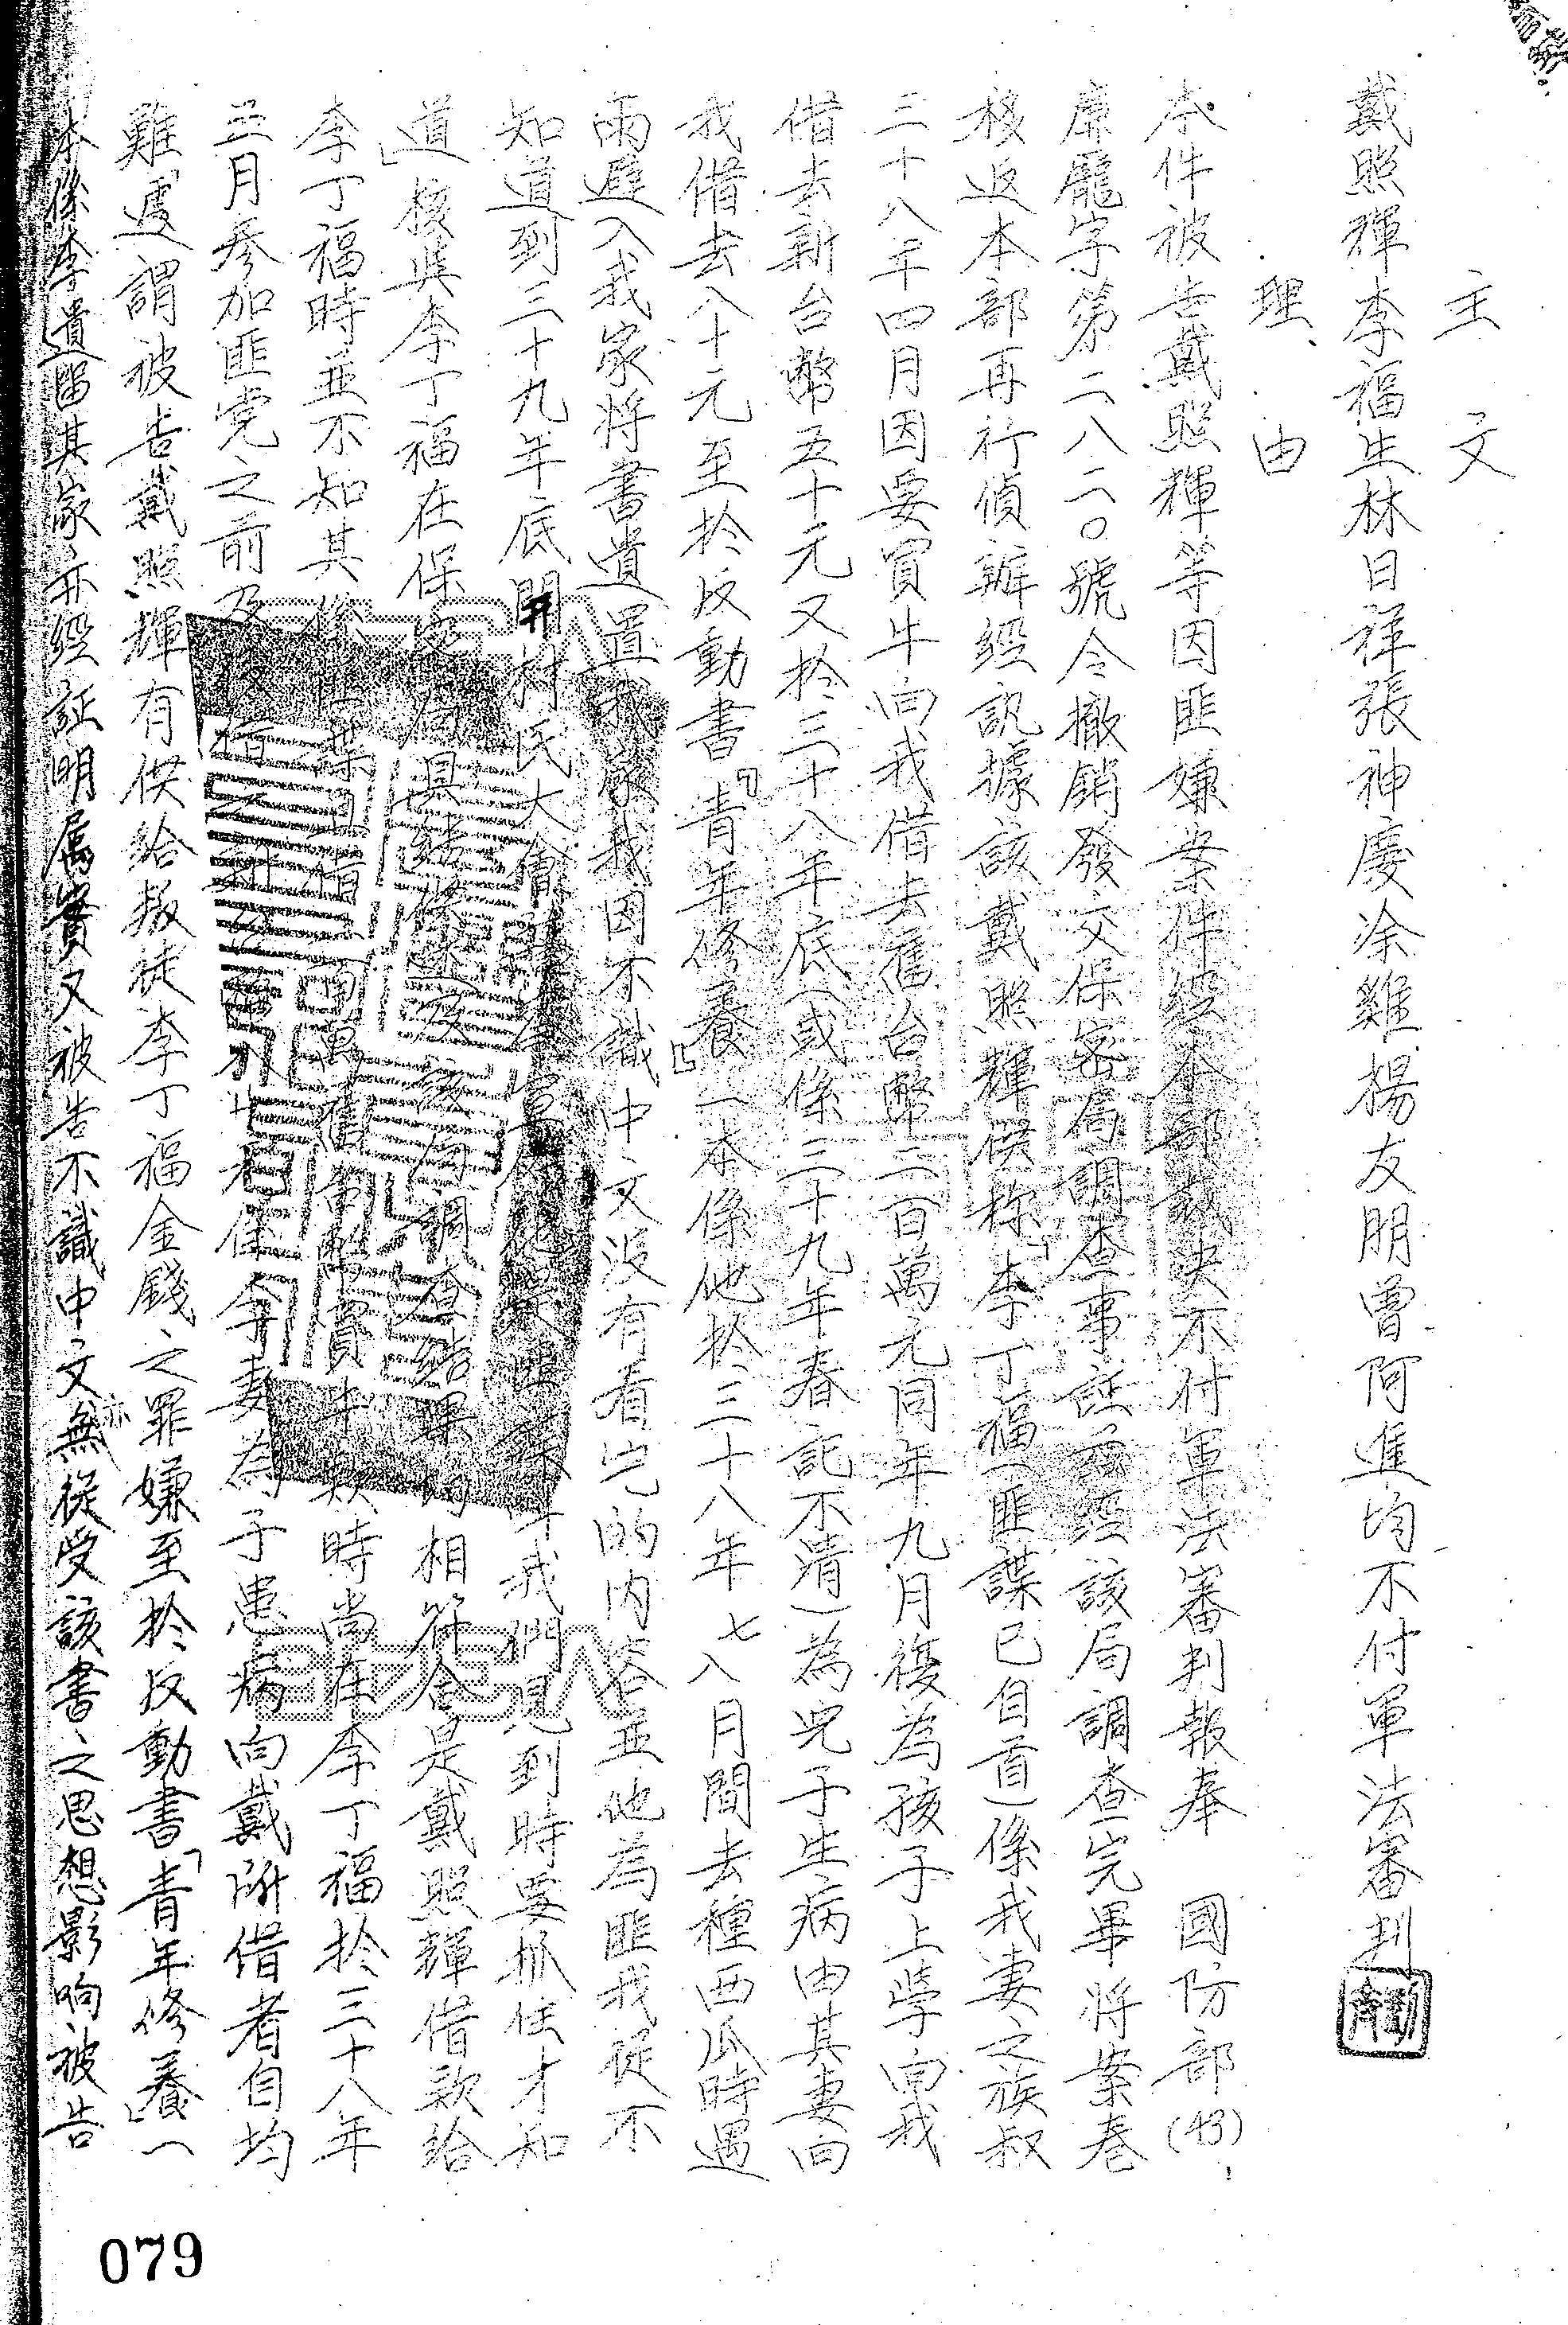 主文
戴照輝李福生林日祥張神慶涂雞楊友朋曾阿進均不付軍法審判
理由
本件被告戴照輝等因匪嫌案件經本部裁決不付軍法審判報奉 國防部(43)
廉龐字第二八二〇號令撤銷發交保密局調查事証經該局調查完畢將案卷
移返本部再行偵辦經訊據該戴照輝供称李丁福(匪諜已自首)係我妻之族叔
三十八年四月因要買牛向我借去舊台幣二百萬元同年九月後為孩子上學向我
借去新台幣五十元又於三十八年底(或係三十九年春記不清)為兒子生病由其妻向
我借去八十元至於反動書「青年修養」一本係他於三十八年七八月間去種西瓜時遇
雨避入我家將書遺置我家我因不識中文沒有看它的內容並他為匪我從不
知道到三十九年底開村民大會時
我們見到時要抓住才知
道」核與李丁福在保密局具
調查結果均相符合是戴照輝借款給
李丁福時並不知其
買牛款時尚在李丁福於三十八年
五月參加匪党之前及
李妻為子患病向戴所借者自均
難遽謂被告戴照輝有供給叛徒李丁福金錢之罪嫌至於反動書「青年修養」一
本係李遺留其家亦經証明属實又被告不識中文亦無從受該書之思想影响被告
079